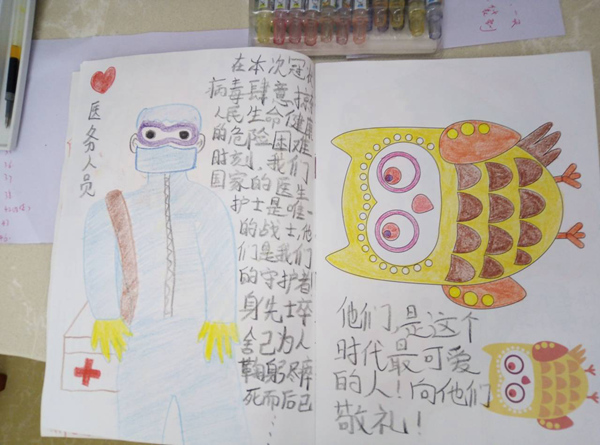 医务人员
在本次冠
病毒肆意
人民生命健康
的危险困难
时刻,我们
国家的医生
护士是唯一
的战士,他
们是我们
的守护者
身先士卒
舍己为人
鞠躬尽瘁
死而后已
……
他们是这个
时代最可爱
的人!向他们
敬礼!